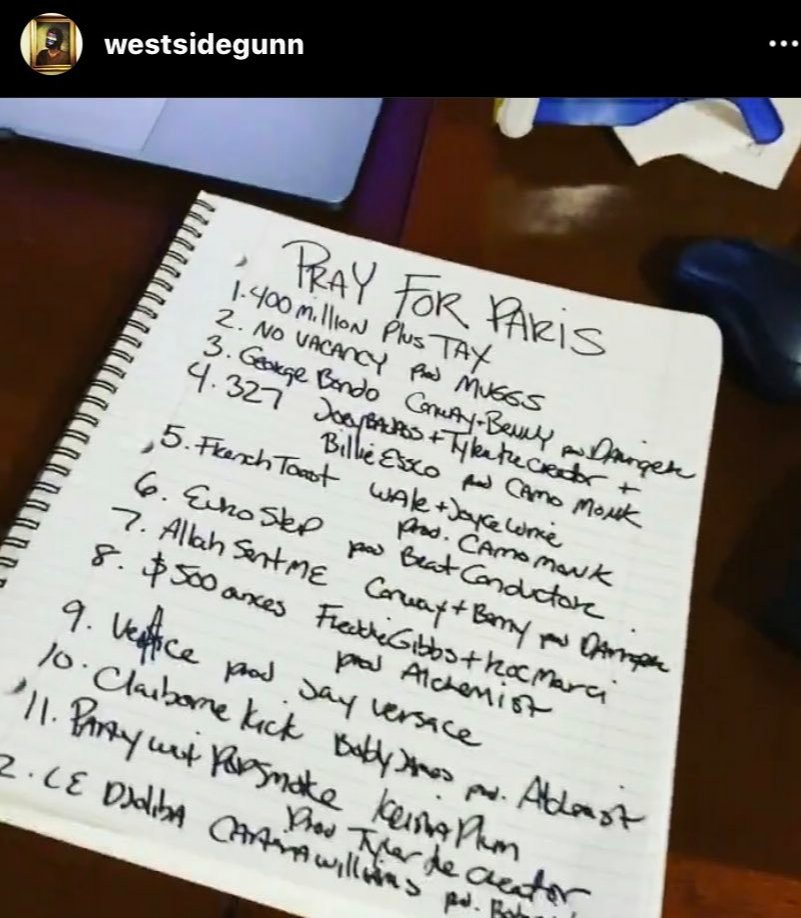 westsidegunn
PRAY FOR PARIS
1. 400 Million Plus TAX
2. NO VACANCY prod MUGGS
3. George Bondo Conway + Benny prod Daringer
4. 327 JoeyBADASS + Tyler the Creator +
Billie Essco prod CAMO MONK
5. French Toast WAle + Joyce Wrice
prod. CAMOMONK
6. Euro Step prod Beat Conductor
7. Allah Sent ME Conway + Benny prod DAringer
8. $500 ounces Freddie Gibbs + Roc Marci
prod Alchemist
9. Versace prod Jay Versace
10. Claiborne Kick Boldy James prod. Alchemist
11. PARty wit POPSmoke Keisha Plum
Prod Tyler the Creator
2. LE Djoliba CArtier Williams pod.